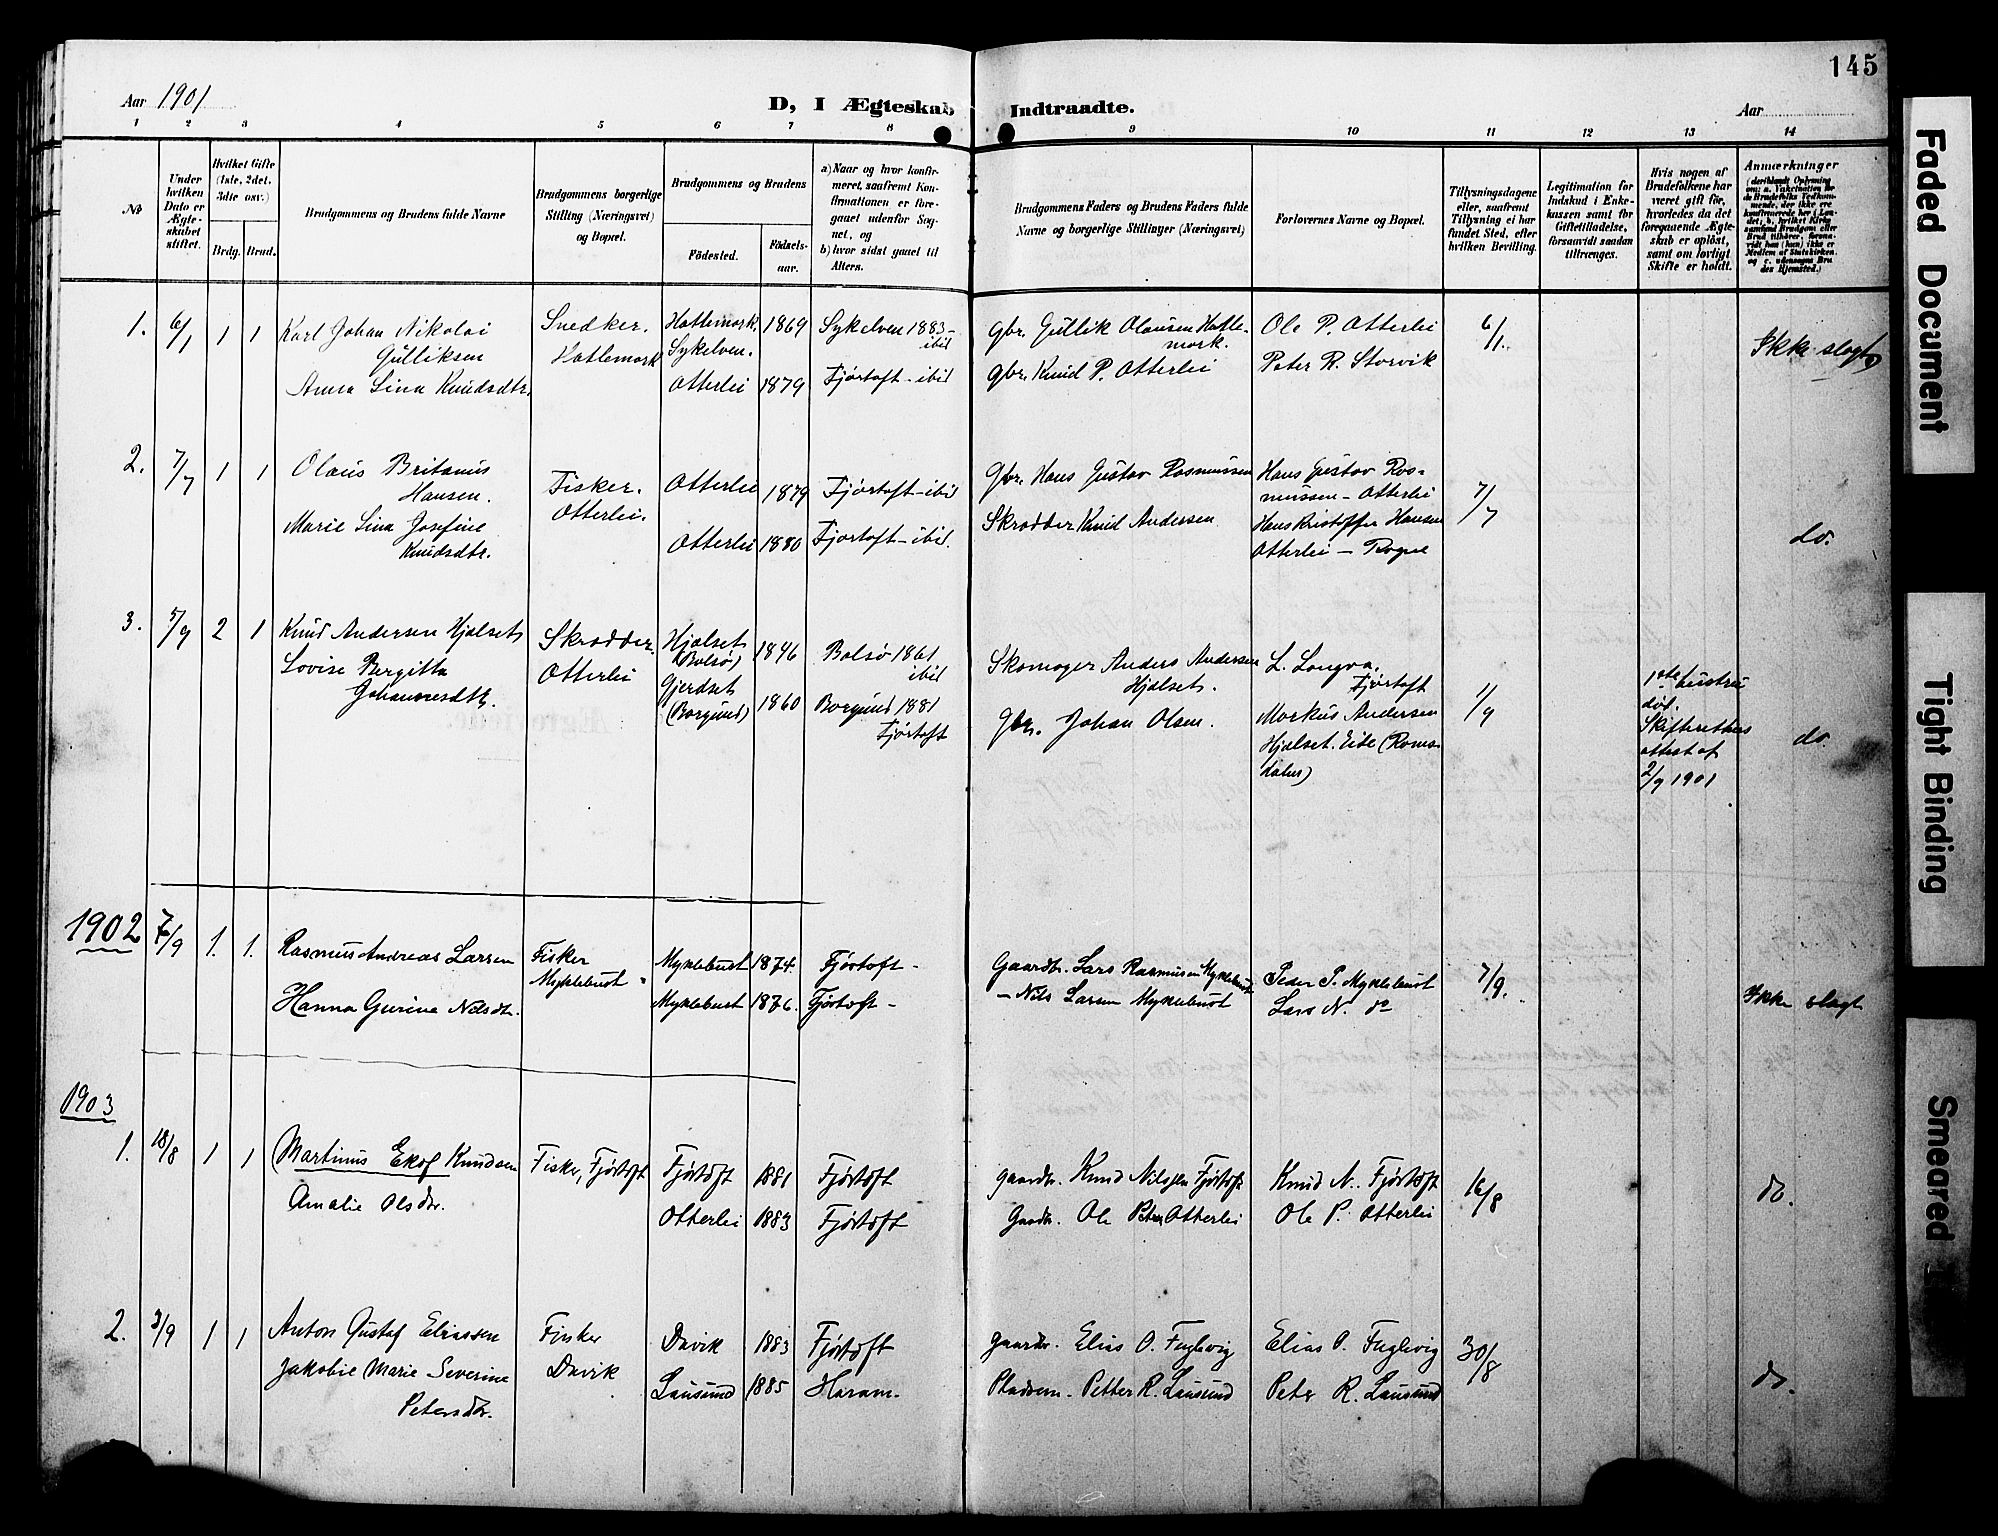 145
Aar 1901
D, I Ægteskab Indtraadte.
Aar
1 2 3 4 5 6 7 8 9 10 11 12 13 14
No
Under hvilken Dato er Ægteskabet stiftet.
Hvilket Gifte (1ste, 2det, 3die osv.)
Brdg. Brud.
Brudgommens og Brudens fulde Navne
Brudgommens borgerlige Stilling (Næringsvei) og Bopæl.
Brudgommens og Brudens
Födested.
Födsels-aar.
a) Naar og hvor konfirmeret, saafremt Konfirmationen er foregaaet udenfor Sognet, og
b) hvor sidst gaaet til Alters.
Brudgommens Faders og Brudens Faders fulde Navne og borgerlige Stillinger (Næringsvei)
Forlovernes Navne og Bopæl.
Tillysningsdagene eller, saafremt Tillysning ei har fundet Sted, efter hvilken Bevilling.
Legitimation for Indskud i Enkekassen samt for Giftetilladelse, forsaavidt saadan tiltrænges.
Hvis nogen af Brudefolkene har været gift för, hvorledes da det foregaaende Ægteskab er oplöst, samt om lovligt Skifte er holdt.
Anmærkninger
1. 6/1 1 1 Karl Johan Nikolai Gulliksen
Anna Lina Knudsdtr.
Snedker. Hatlemark
Hatlemark, Sykelven. 1869 Sykelven 1883 - ibid
Otterlei 1879 Fjørtoft - ibid
gbr. Gullik Olausen Hatlemark.
gbr. Knud P. Otterlei
Ole P. Otterlei
Peter R. Storvik
6/1.
Ikke slægt
2. 7/7 1 1 Olaus Britanus Hansen.
Marie Lina Josefine Knudsdtr.
Fisker. Otterlei.
Otterlei 1879 Fjørtoft - ibid
Otterlei 1880 Fjørtoft - ibid.
Gbr. Hans Gustav Rasmussen
Skrædder Knud Andersen
Hans Gustav Rasmussen - Otterlei
Hans Kristoffer Hansen Otterlei - Rogne
7/7
do.
3. 5/9 2 1 Knud Andersen Hjelset,
Lovise Bergitta Johannesdtr.
Skrædder. Otterlei
Hjelset (Bolsø) 1846 Bolsø 1861 ibid
Gjerdset (Borgund) 1860 Borgund 1881 Fjørtoft
Skomager Anders Andersen Hjelset.
Gbr. Johan Olsen.
L. Longva. Fjørtoft
Markus Andersen Hjelset. Eide (Romsdalen)
1/9
1ste hustru død. Skifterettens attest af 2/9 1901
do.
1902
7/9 1. 1. Rasmus Andreas Larsen
Hanna Gurine Nilsdtr.
Fisker Myklebust
Myklebust 1874. Fjørtoft -
Myklebust 1876. Fjørtoft -
Gaardbr. Lars Rasmussen Myklebust
- Nils Larsen Myklebust
Peder P. Myklebust
Lars N. do
7/9.
Ikke slægt
1903
1. 18/8 1 1 Martinus Ekof Knudsen
Amalie Olsdtr.
Fisker, Fjørtoft
Fjørtoft 1881 Fjørtoft
Otterlei 1883 Fjørtoft
gaardbr. Knud Nilssen Fjørtoft
Gaardbr. Ole Peter Otterlei
Knud N. Fjørtoft
Ole P. Otterlei
16/8
do.
2. 3/9 1 1 Anton Gustaf Eliassen
Jakobie Marie Severine Petersdtr.
Fisker Davik
Davik 1883 Fjørtoft
Lausund 1885 Haram.
gaardbr. Elias O. Fuglevig
Pladsem. Petter R. Lausund
Elias O. Fuglevig
Peter R. Lausund
30/8
do.
Faded Document
Tight Binding
Smeared